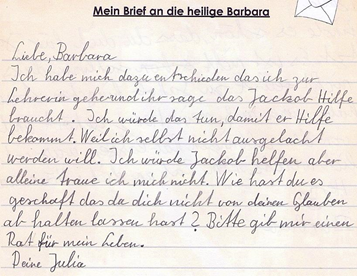 Mein Brief an die heilige Barbara
Liebe, Barbara
Ich habe mich dazu entschieden das ich zur
Lehrerin gehe und ihr sage das Jackob Hilfe
braucht. Ich würde das tun, damit er Hilfe
bekommt. Weil ich selbst nicht ausgelacht
werden will. Ich würde Jackob helfen aber
alleine traue ich mich nicht. Wie hast du es
geschaft das da dich nicht von deinen Glauben
ab halten lassen hast? Bitte gib mir einen
Rat für mein Leben.
Deine Julia